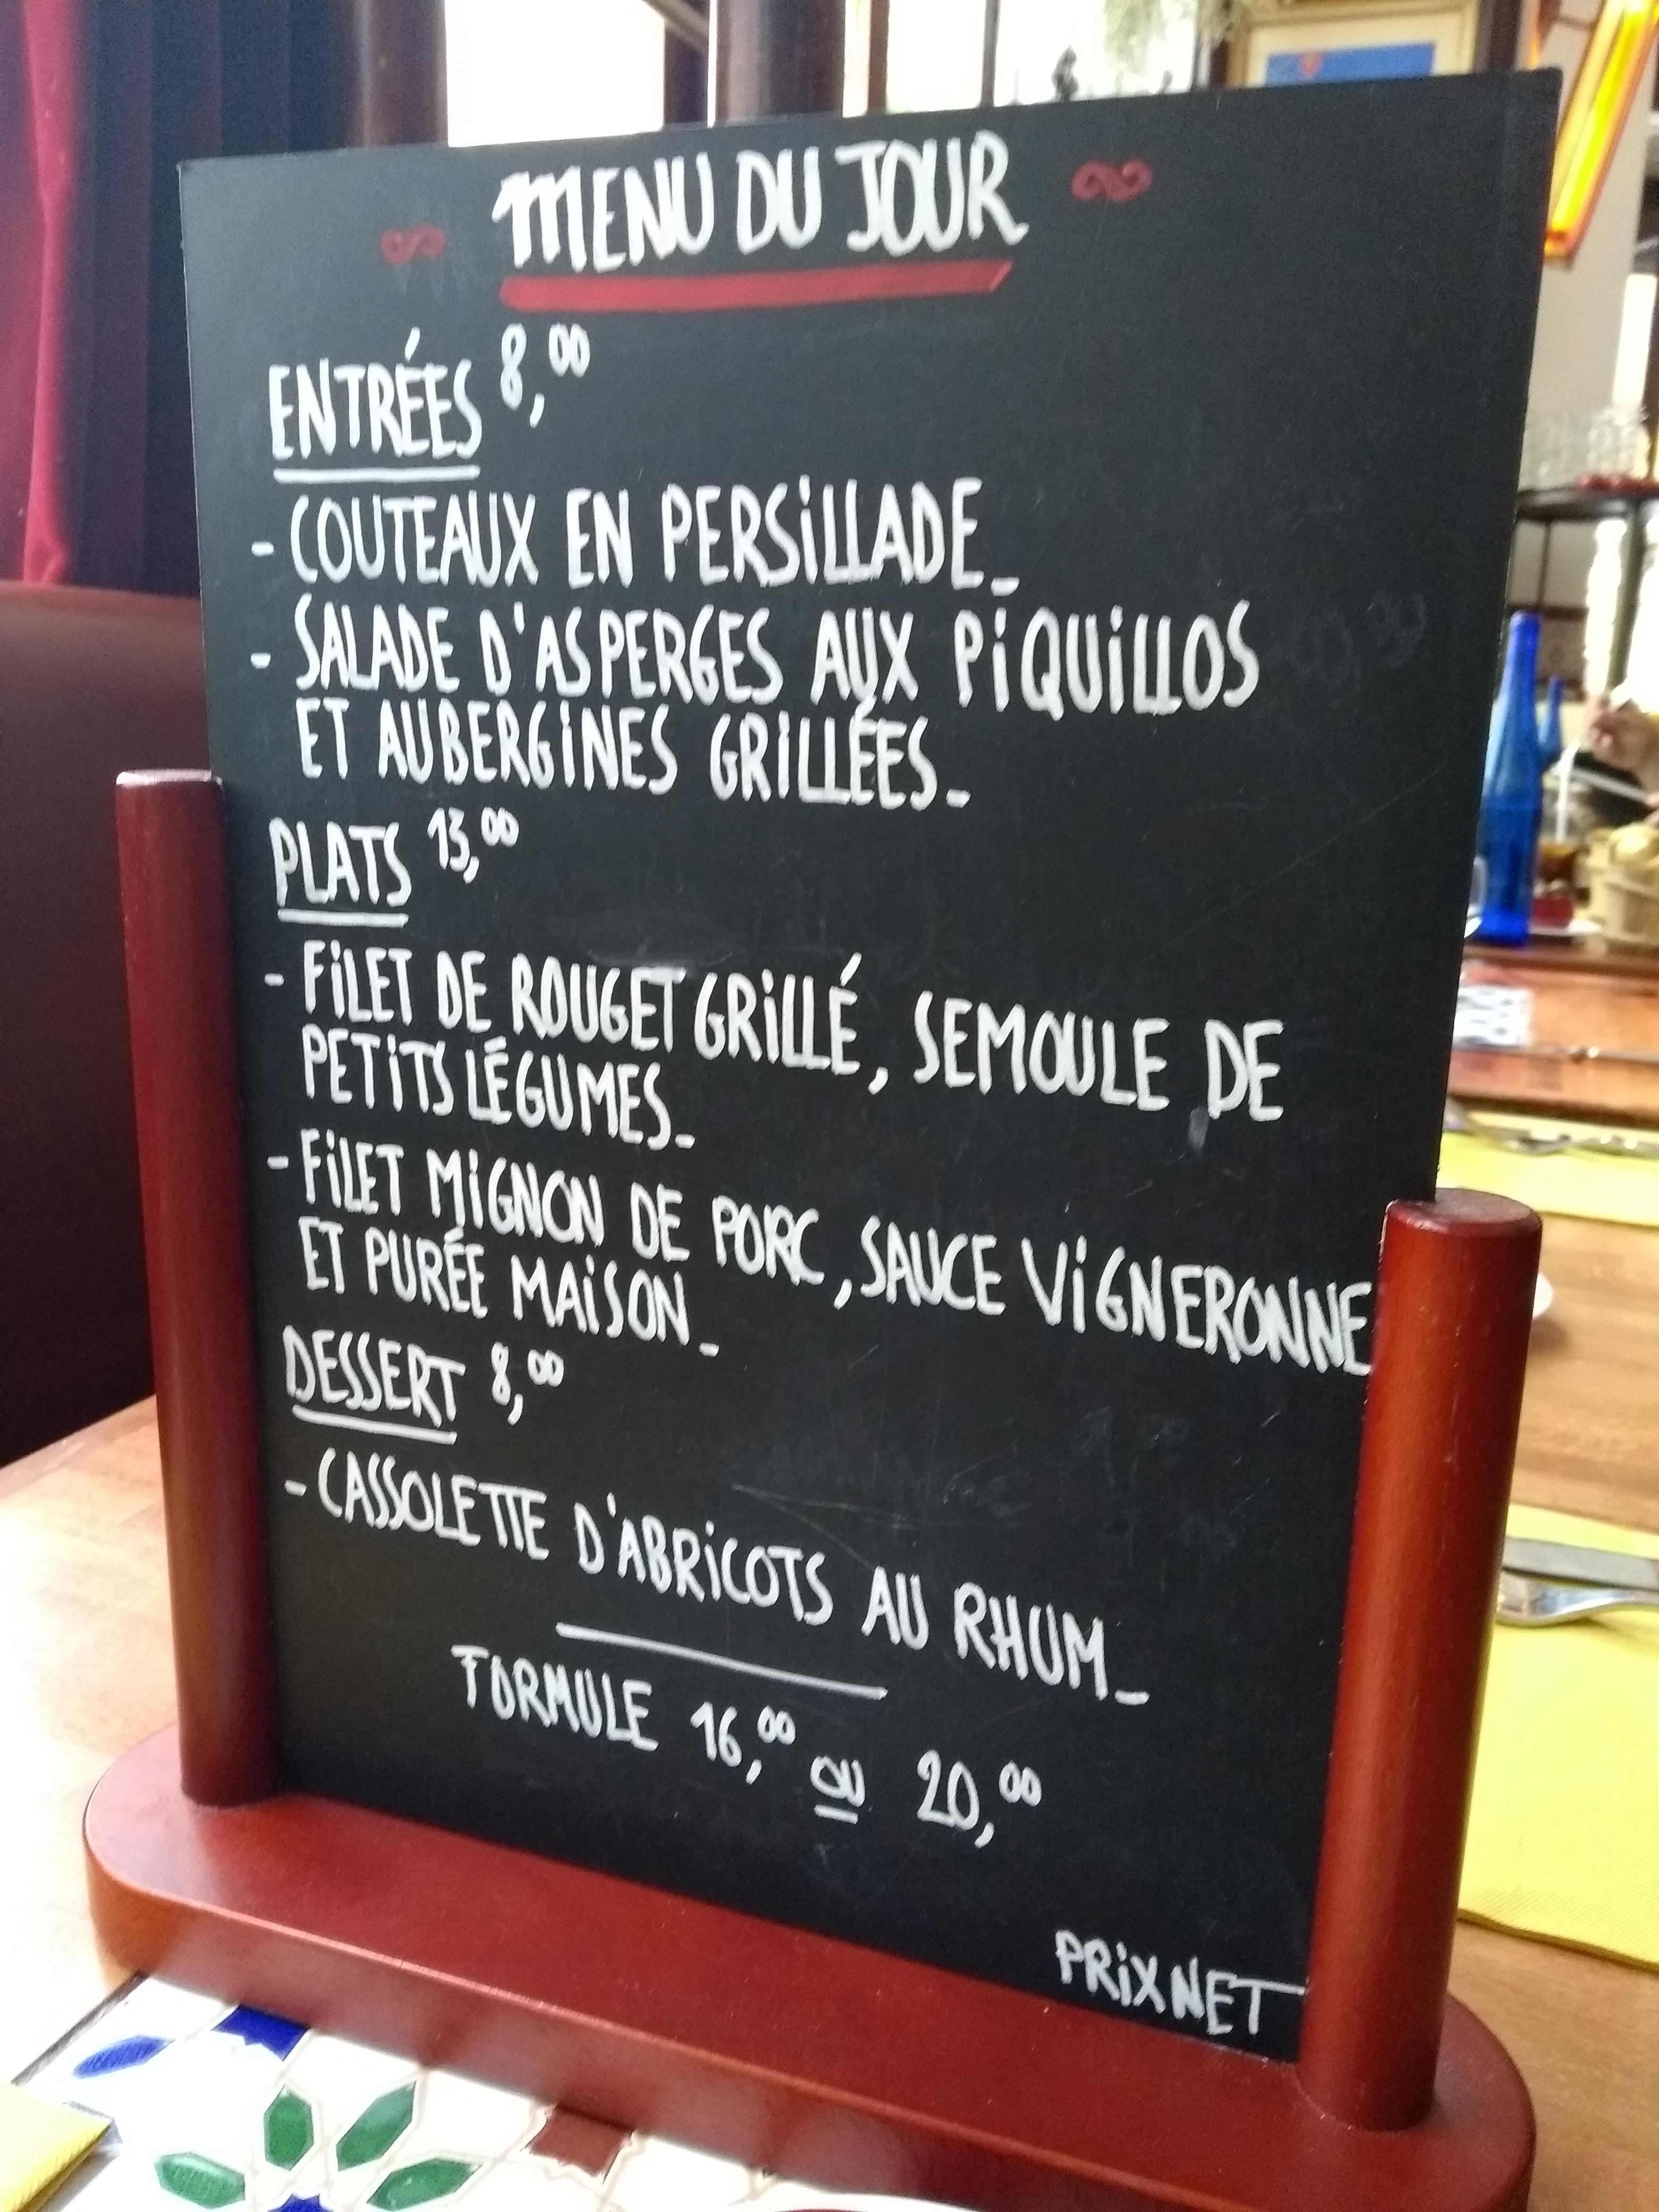 MENU DU JOUR
ENTRÉES 8,00
- COUTEAUX EN PERSILLADE_
- SALADE D'ASPERGES AUX PIQUILLOS
ET AUBERGINES GRILLÉES_
PLATS 13,00
- FILET DE ROUGET GRILLÉ, SEMOULE DE
PETITS LÉGUMES_
- FILET MIGNON DE PORC, SAUCE VIGNERONNE
ET PURÉE MAISON_
DESSERT 8,00
- CASSOLETTE D'ABRICOTS AU RHUM_
FORMULE 16,00 OU 20,00
PRIX NET